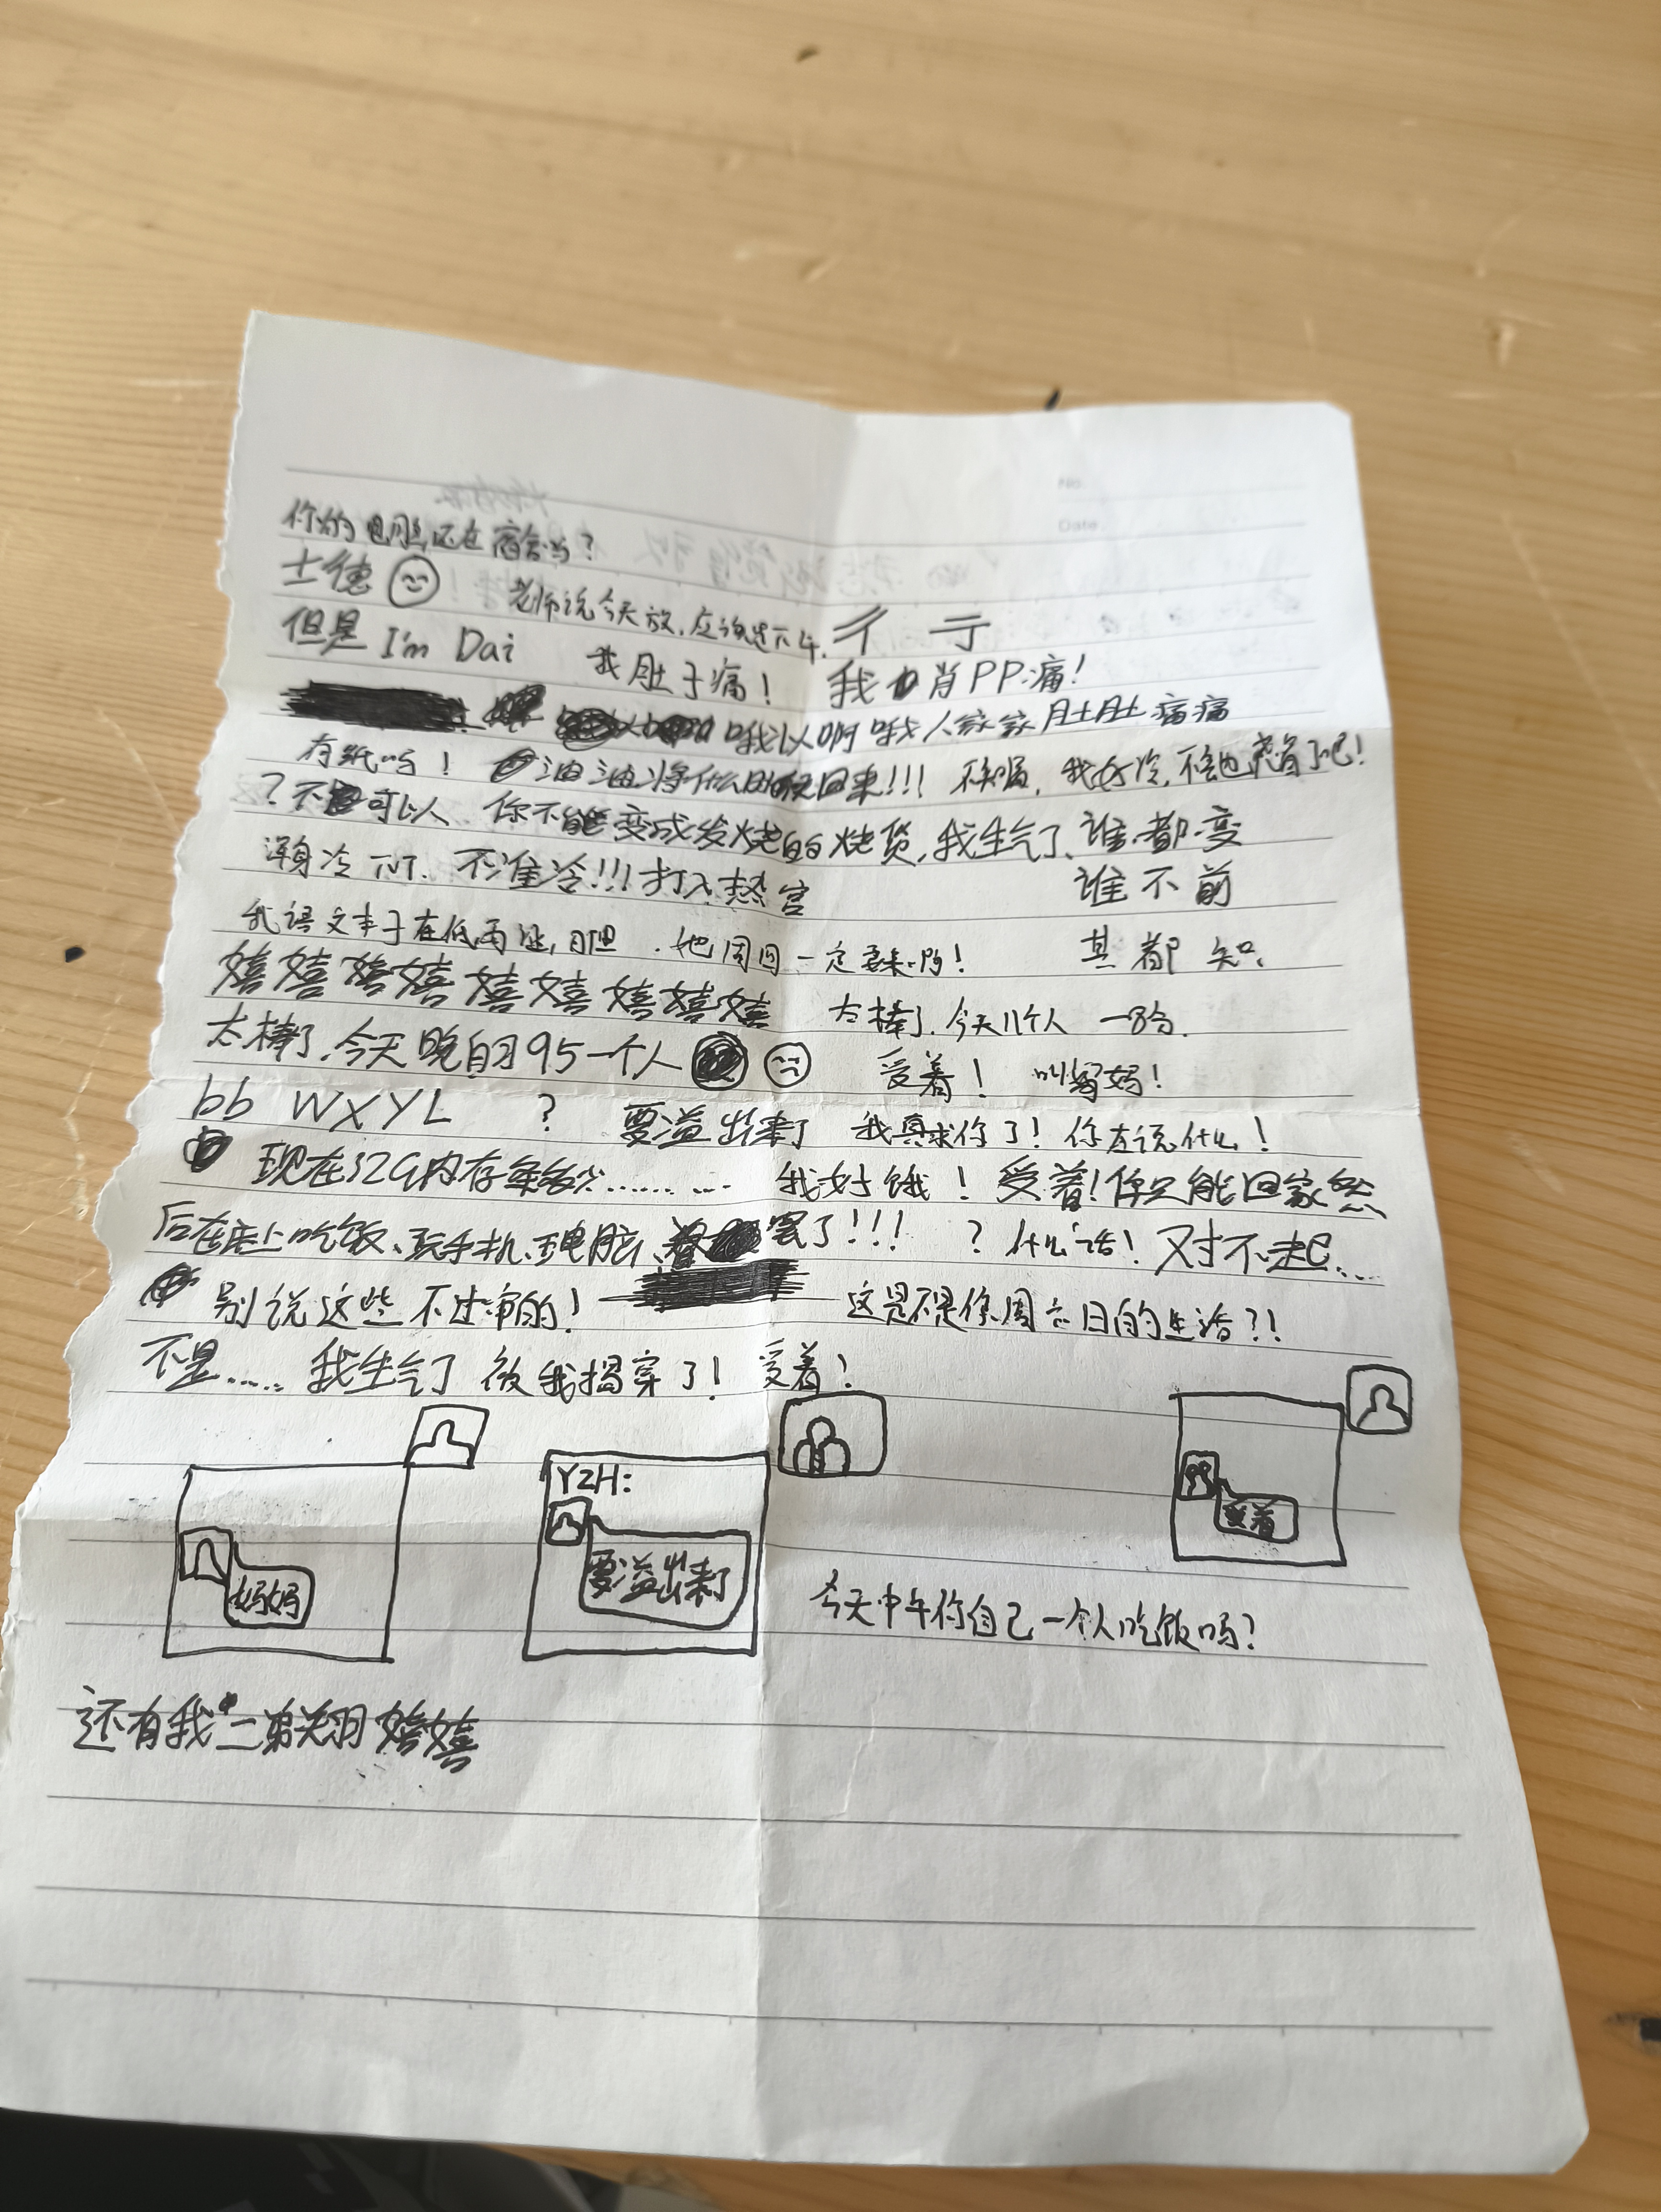 No.
Date
你的电脑还在宿舍吗?
士德 老师说今天放,应该是下午. 彳 亍
但是 I'm Dai 我肚子痛! 我 肖PP痛!
哦以啊哦人家家肚肚痛痛
有纸吗! 油油将什么时候回来!!! 不 我好冷,不 了吧!
?不可以 你不能变成发烧的烧货,我生气了、谁都变
浑身冷 不准冷!!!打入热宫 谁不前
我语文 在 一定要来 ! 其都知.
嬉嬉嬉嬉嬉嬉嬉嬉嬉 太棒了.今天11个人 一 .
太棒了.今天晚自习95一个人 受着! 叫 妈!
bb WXYL ? 要溢出来了 我真求你了!你在说什么!
现在32G内存 ......... 我好饿!受着!你只能回家然
后在 上吃饭、玩手机、 电脑、 罢了!!! ?什么话!对不起....
别说这些不过审的! 这是不是你周六日的生活?!
不是..... 我生气了 被我揭穿了! 受着!
妈妈
YZH:
要溢出来了
受着
今天中午你自己一个人吃饭吗?
还有我 二弟关羽嬉嬉